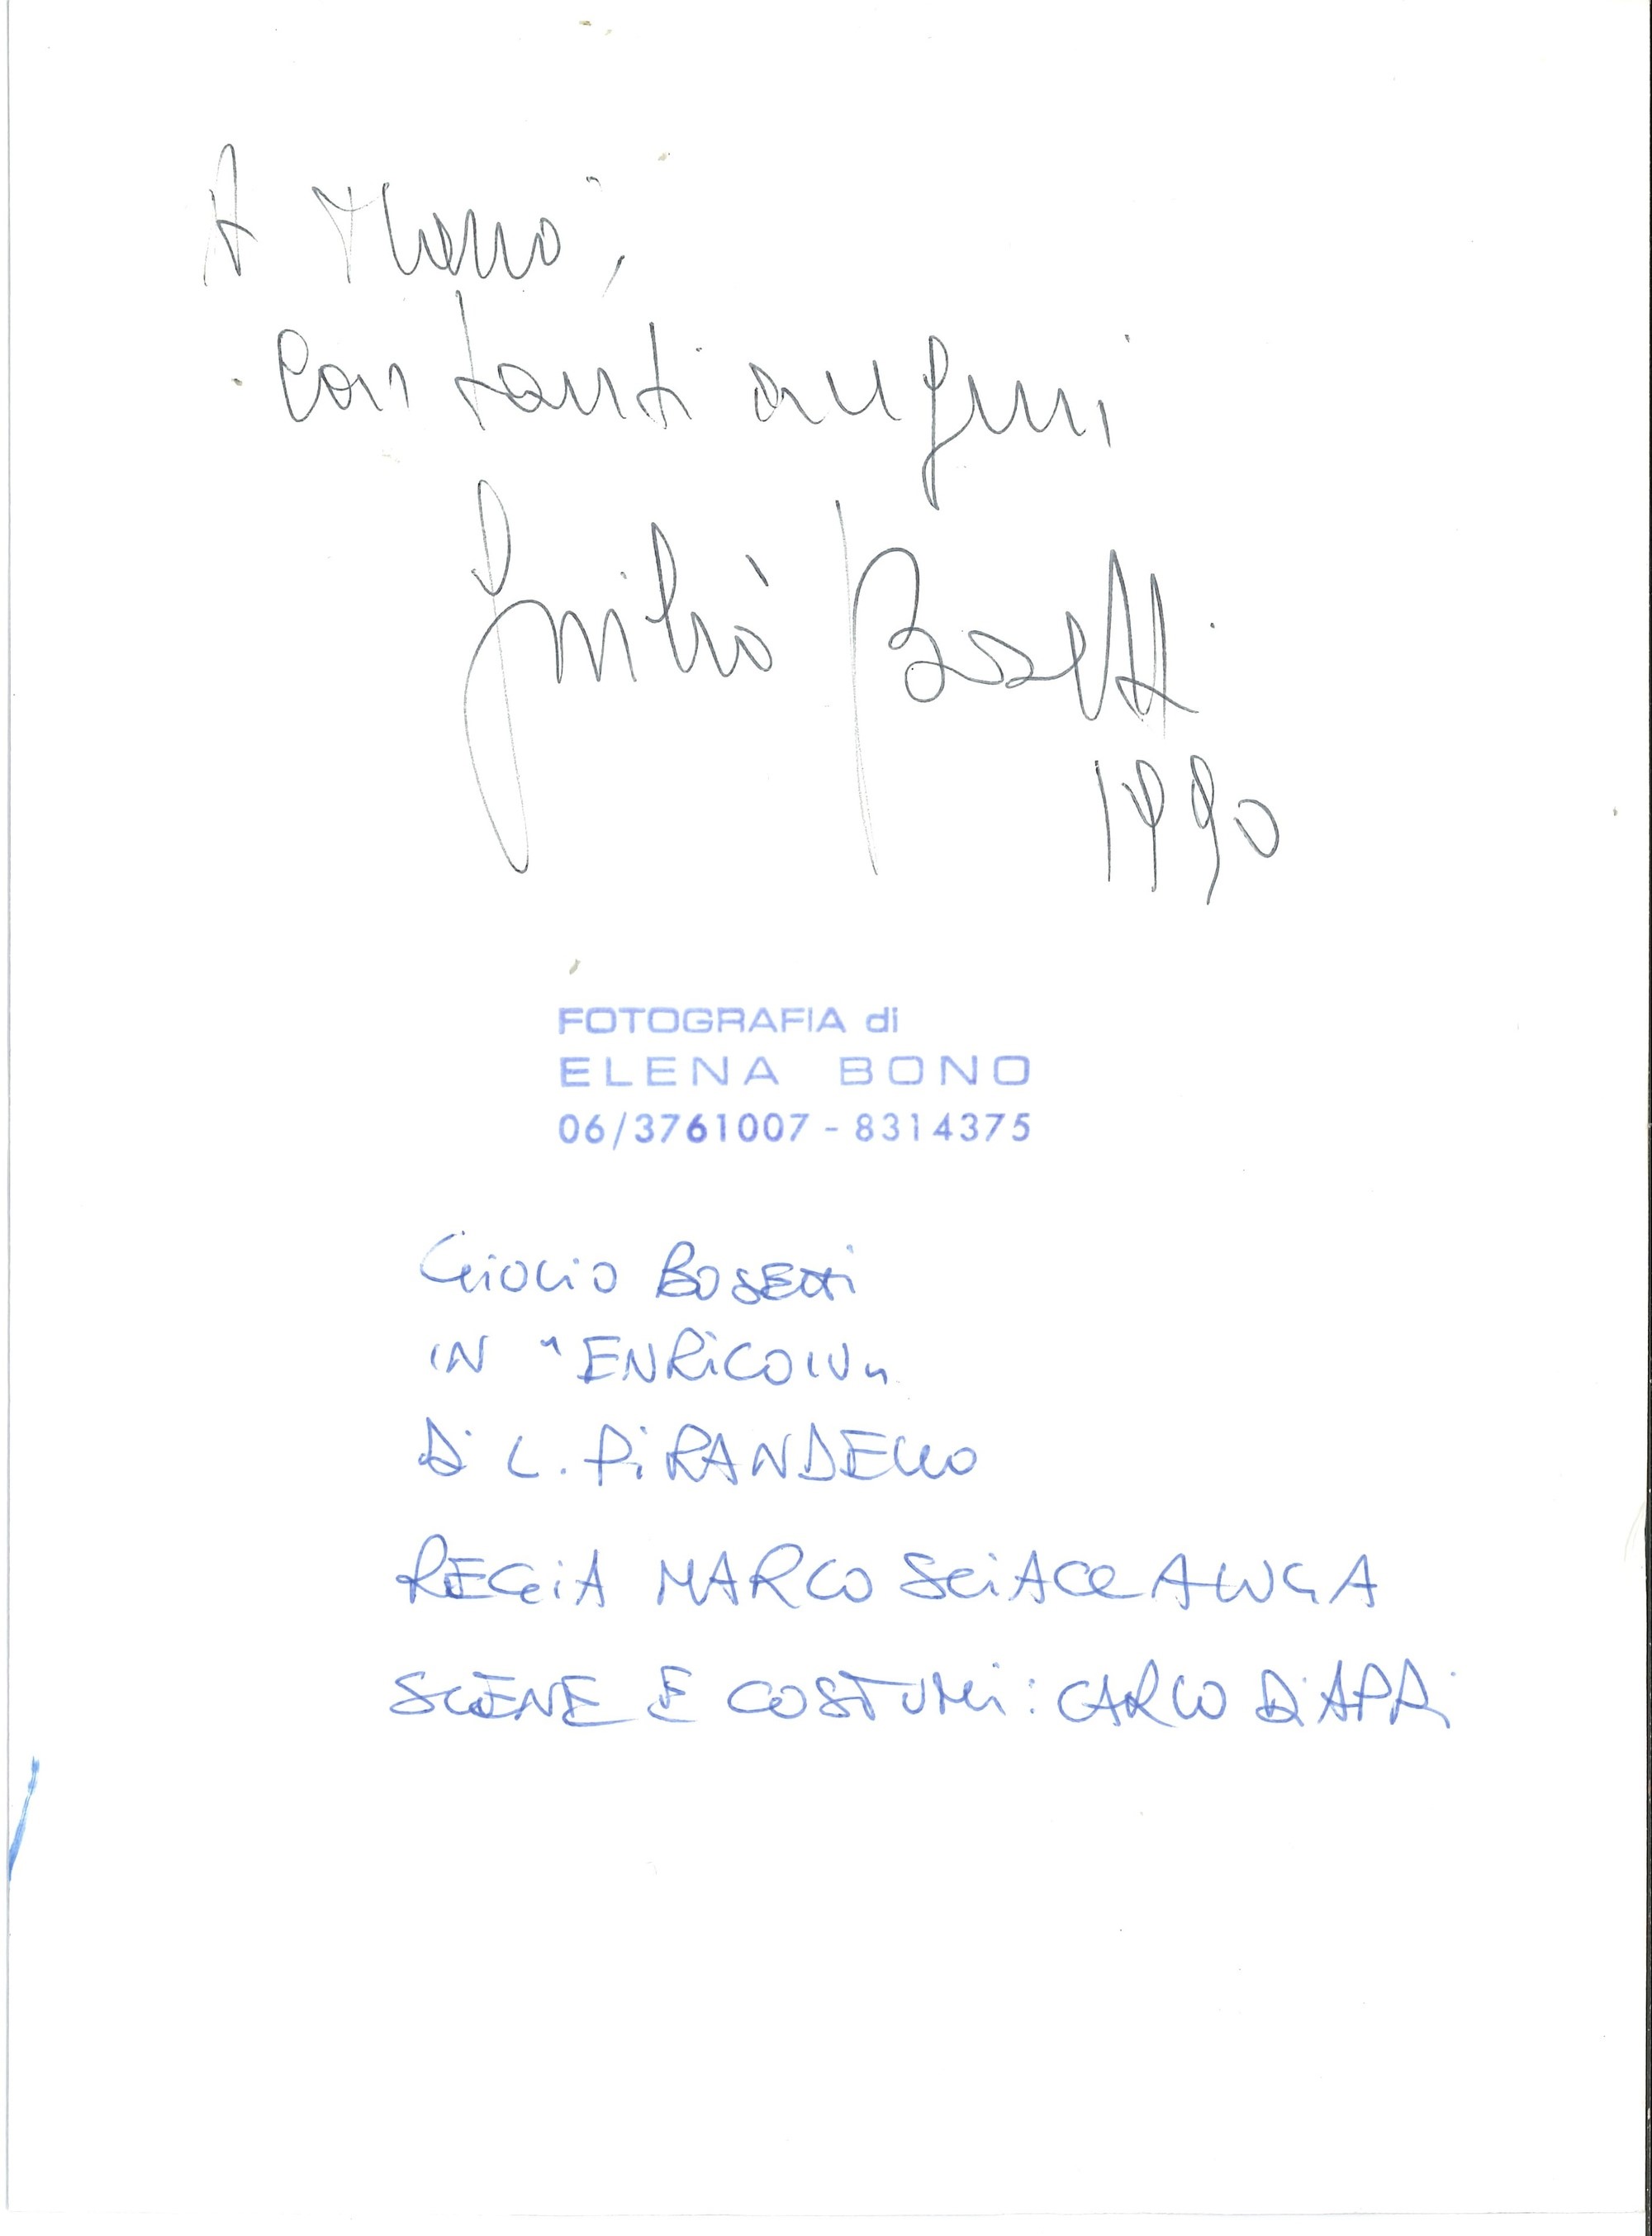 A Mario,
con tanti auguri
Giulio Bosetti
1990
FOTOGRAFIA di
ELENA BONO
06/3761007 - 8314375
GIULIO BOSETTI
IN "ENRICO IV"
DI L. PIRANDELLO
REGIA MARCO SCIACCALUGA
SCENE E COSTUMI: CARLO DIAPPI